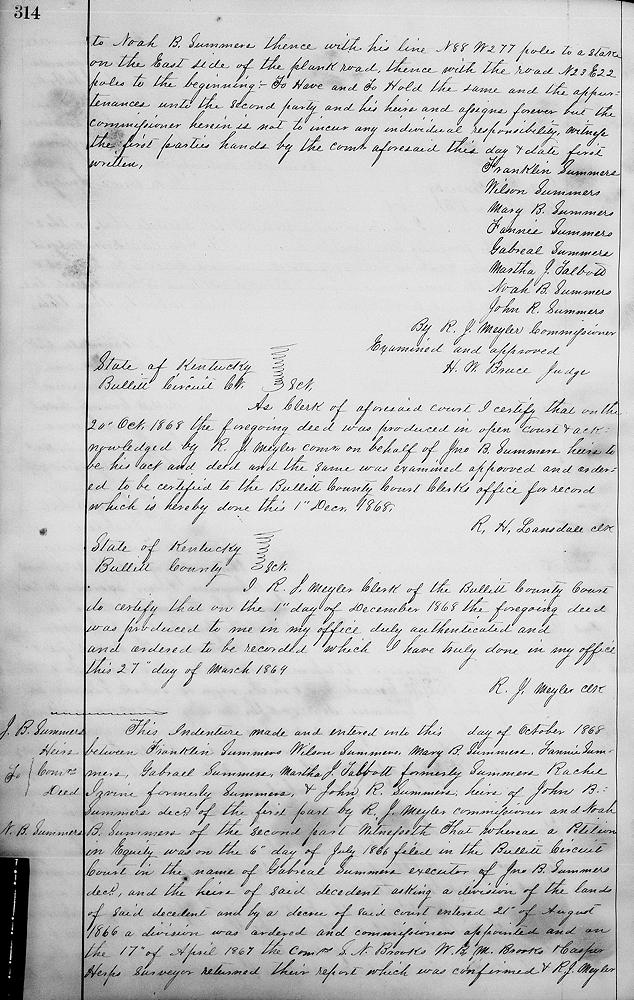 314
to Noah B. Summers thence with his line N88 W277 poles to a stake
on the East side of the plank road, thence with the road N23 E22
poles to the beginning:- To Have and To Hold the same and the appur=
tenances unto the second party and his heirs and assigns forever but the
commissioner herein is not to incur any individual responsibility, witness
the first parties hands by the comr aforesaid this day & date first
written,
Franklin Summers
Wilson Summers
Mary B. Summers
Fannie Summers
Gabreal Summers
Martha J. Talbott
Noah B. Summers
John R. Summers
By R. J. Meyler Commissioner
Examined and approved
H. W. Bruce Judge
State of Kentucky
Bullitt Circuit Ct. Sct.
As Clerk of aforesaid court I certify that on the
20" Oct. 1868 the foregoing deed was produced in open court & ack=
nowledged by R. J. Meyler comr on behalf of Jno B. Summers heirs to
be his act and deed and the same was examined approved and order=
ed to be certified to the Bullitt County Court Clerks office for record
which is hereby done this 1" Decr. 1868.
R. H. Lansdale clk
State of Kentucky
Bullitt County Sct.
I R. J. Meyler Clerk of the Bullitt County Court
do certify that on the 1" day of December 1868 the foregoing deed
was produced to me in my office duly authenticated and
and ordered to be recorded which I have truly done in my office
this 27" day of March 1869
R. J. Meyler clk
J. B. Summers
Heirs
To Comrs
Deed
N. B. Summers
This Indenture made and entered into this day of October 1868
between Franklin Summers Wilson Summers, Mary B. Summers, Fannie Sum-
mers, Gabrael Summers, Martha J. Talbott formerly Summers Rachel
Irvine formerly Summers, & John R. Summers, heirs of John B.
Summers decd of the first part by R. J. Meyler commissioner and Noah
B. Summers of the second part Witnesseth That whereas a Petition
in Equity was on the 6" day of July 1866 filed in the Bullitt Circuit
Court in the name of Gabreal Summers executor of Jno B. Summers
decd, and the heirs of said decedent asking a division of the lands
of said decedent and by a decree of said court entered 21" of August
1866 a division was ordered and commissioners appointed and on
the 17" of April 1867 the Comrs S. N. Brooks W. E. M. Brooks & Casper
Herps Surveyor returned their report which was confirmed & R. J. Meyler